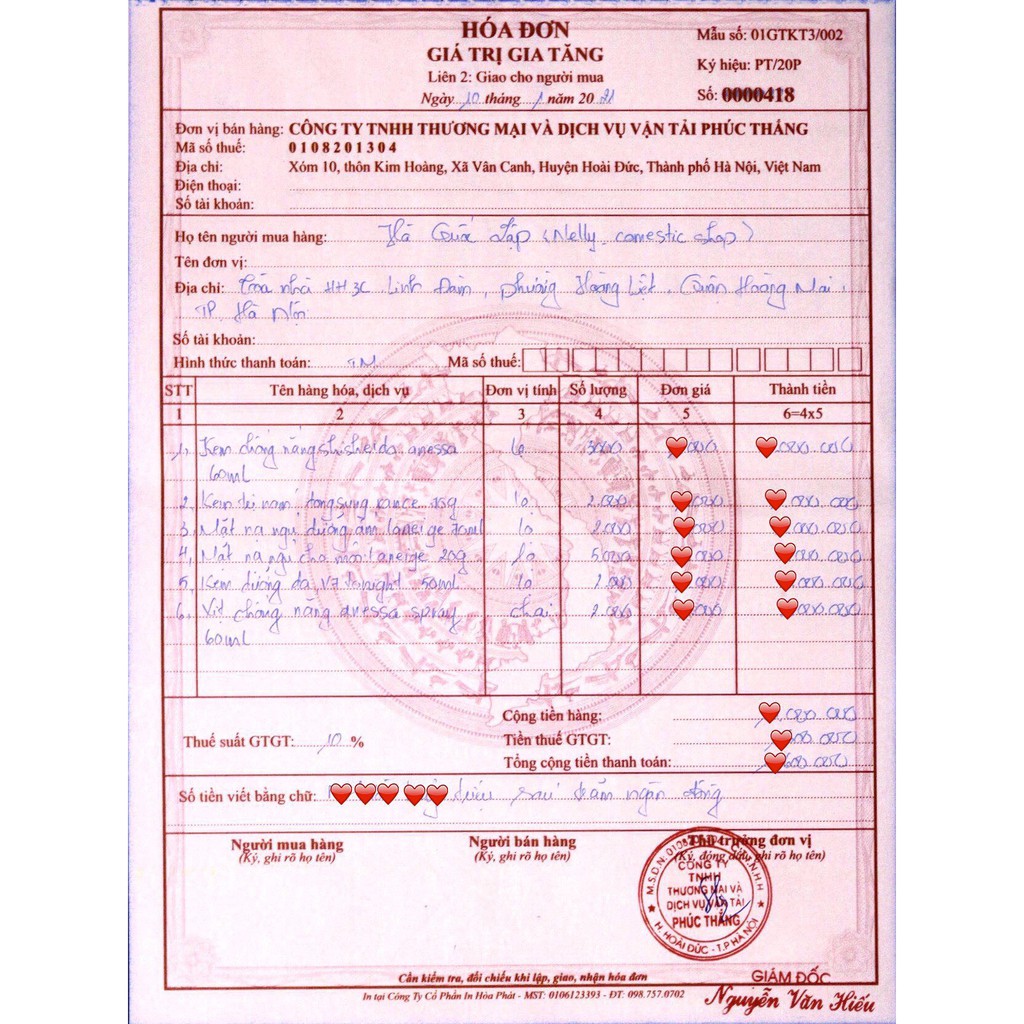 HÓA ĐƠN
GIÁ TRỊ GIA TĂNG
Liên 2: Giao cho người mua
Ngày 10 tháng 1 năm 2021
Mẫu số: 01GTKT3/002
Ký hiệu: PT/20P
Số: 0000418
Đơn vị bán hàng: CÔNG TY TNHH THƯƠNG MẠI VÀ DỊCH VỤ VẬN TẢI PHÚC THẮNG
Mã số thuế: 0108201304
Địa chỉ: Xóm 10, thôn Kim Hoàng, Xã Vân Canh, Huyện Hoài Đức, Thành phố Hà Nội, Việt Nam
Điện thoại:
Số tài khoản:
Họ tên người mua hàng: Hà Quốc (Nelly comestic shop)
Tên đơn vị:
Địa chỉ: Toà nhà HH3C Linh Đàm, phường Hoàng Liệt, Quận Hoàng Mai,
TP. Hà Nội
Số tài khoản:
Hình thức thanh toán: TM Mã số thuế:
STT Tên hàng hóa, dịch vụ Đơn vị tính Số lượng Đơn giá Thành tiền
1 2 3 4 5 6=4x5
1. Kem chống nắng shisheido anessa 000 000.000
60ml
2. Kem trị nám dongsung rance 2.000 000 000.000
3. Mặt nạ ngủ dưỡng ẩm laneige 70ml 2.000 000 000.000
4. Mặt nạ ngủ cho môi laneige 20g 5.000 000 000.000
5. Kem dưỡng da V7 tonight 50ml 2.000 000 000.000
6. Xịt chống nắng anessa spray chai 2.000 000 000.000
60ml
Cộng tiền hàng: 000.000
Thuế suất GTGT: 10 % Tiền thuế GTGT: 00.000
Tổng cộng tiền thanh toán: 600.000
Số tiền viết bằng chữ: triệu sáu trăm ngàn đồng
Người mua hàng
(Ký, ghi rõ họ tên)
Người bán hàng
(Ký, ghi rõ họ tên)
Thủ trưởng đơn vị
(Ký, đóng dấu, ghi rõ họ tên)
CÔNG TY
TNHH
THƯƠNG MẠI VÀ
DỊCH VỤ VẬN TẢI
PHÚC THẮNG
H. HOÀI ĐỨC - T.P HÀ NỘI
Cần kiểm tra, đối chiếu khi lập, giao, nhận hóa đơn
In tại Công Ty Cổ Phần In Hòa Phát - MST: 0106123393 - ĐT: 098.757.0702
GIÁM ĐỐC
Nguyễn Văn Hiếu